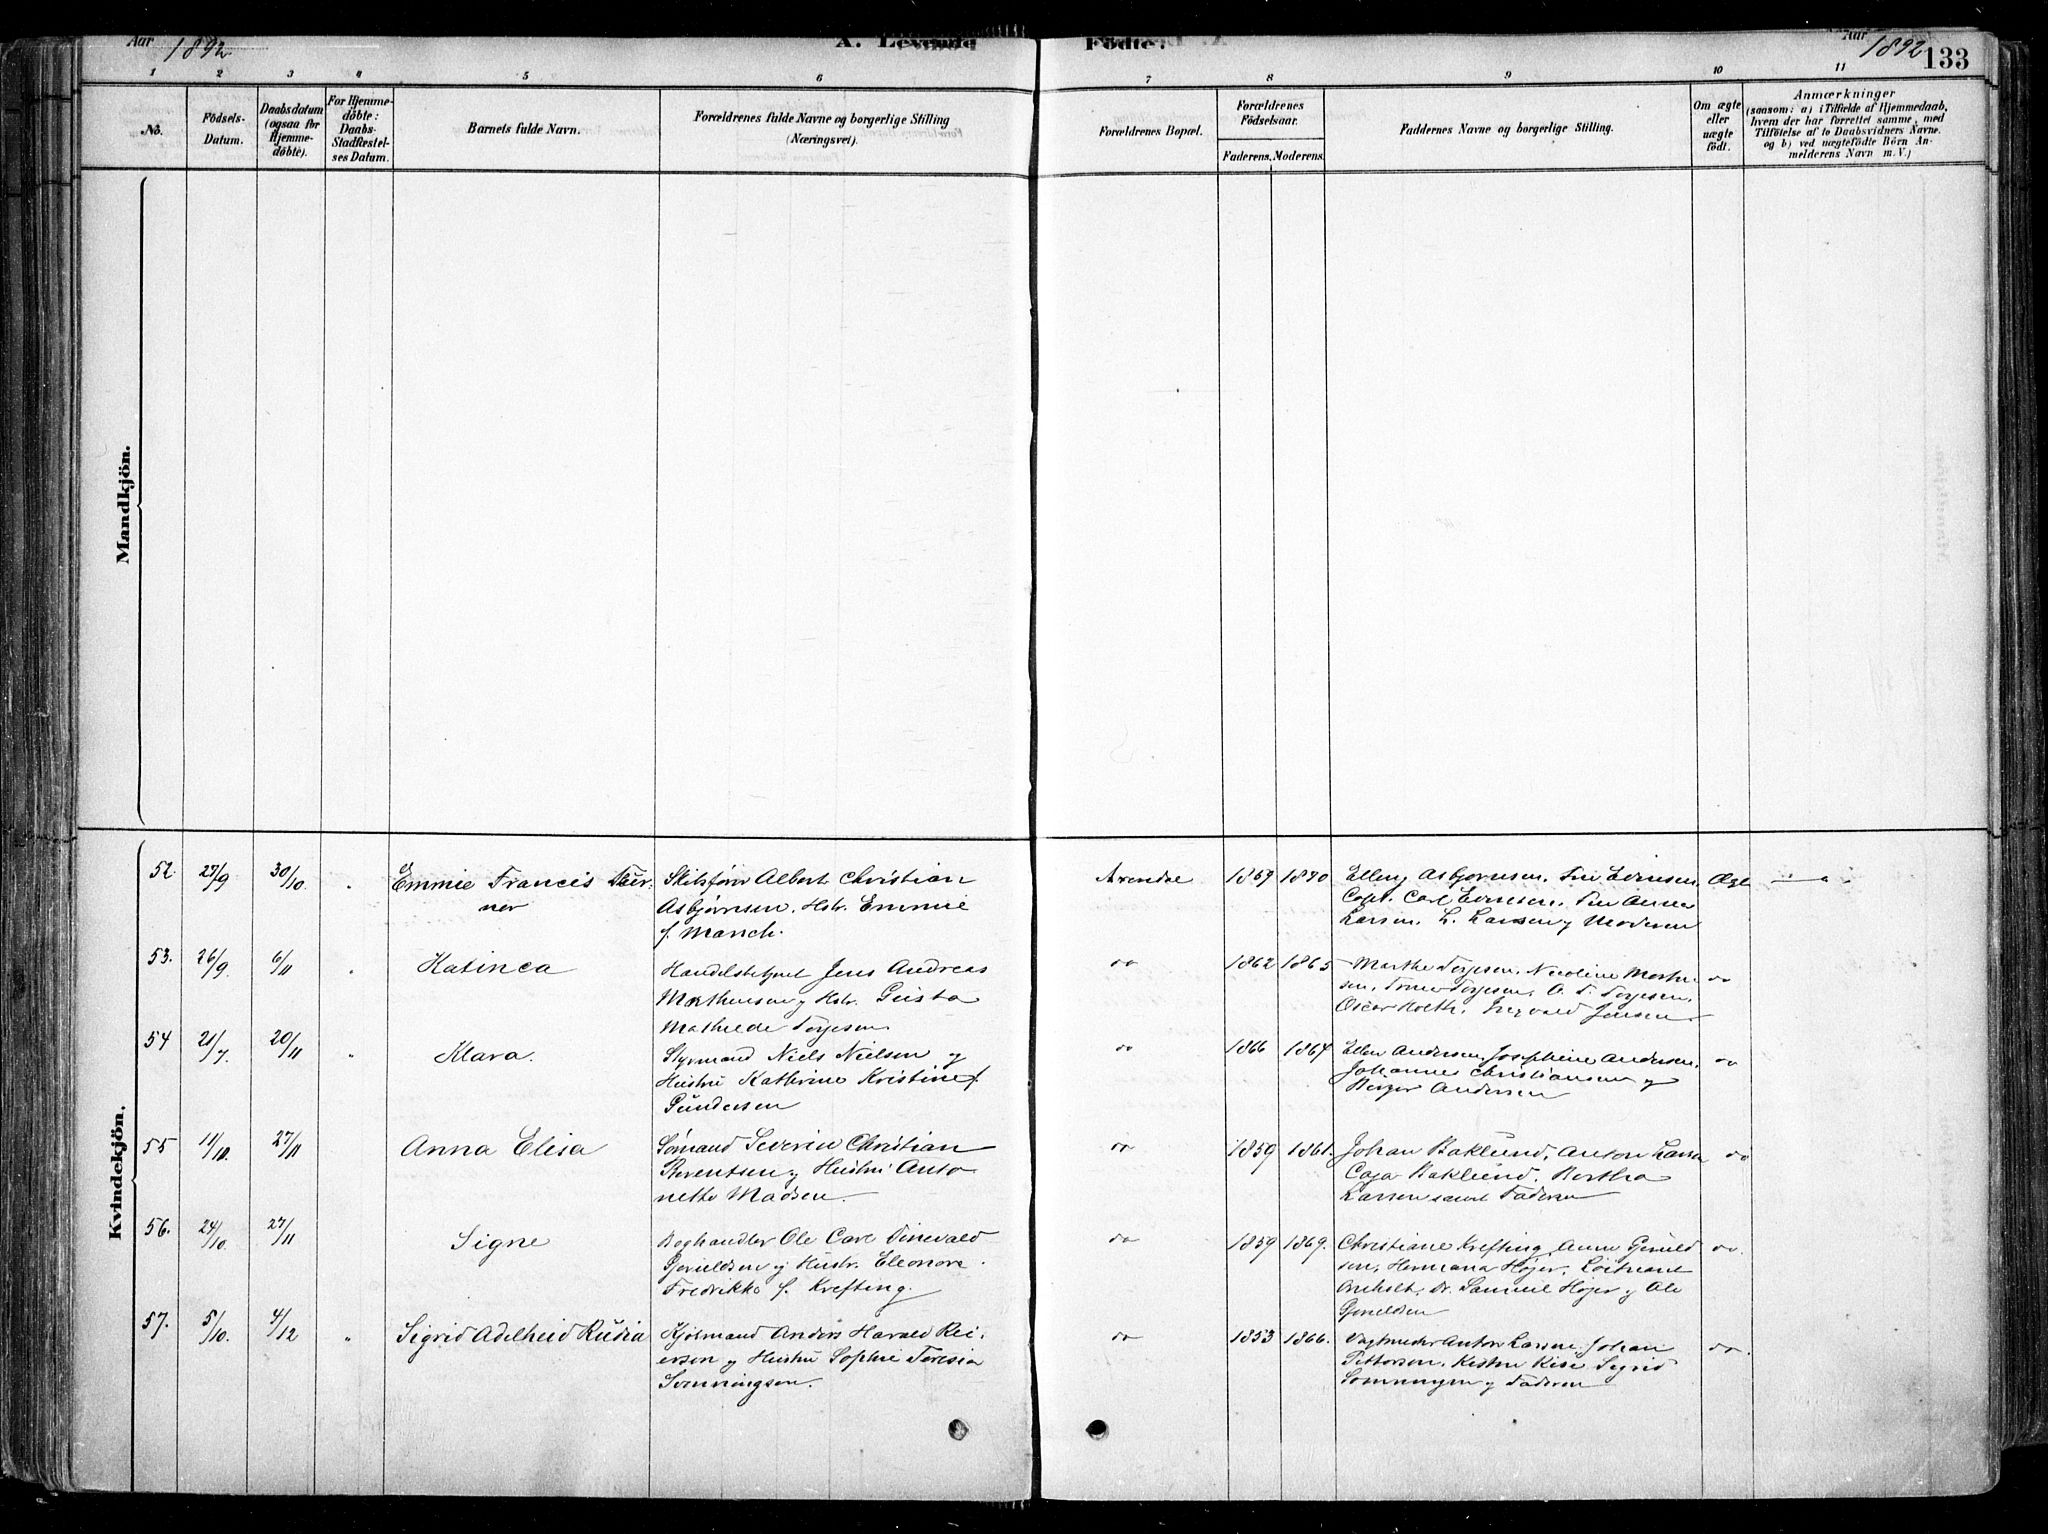 Aar 1892 A. Levende Födte. Aar 1892 133
1 2 3 4 5 6 7 8 9 10 11
No.
Födsels-
Datum.
Daabsdatum
(ogsaa for
Hjemme-
döbte).
For Hjemme-
döbte:
Daabs-
Stadfæstel-
ses Datum.
Barnets fulde Navn.
Forældrenes fulde Navne og borgerlige Stilling
(Næringsvei).
Forældrenes Bopæl.
Forældrenes
Födselsaar.
Faderens. Moderens.
Faddernes Navne og borgerlige Stilling.
Om ægte
eller
uægte
födt.
Anmærkninger
(saasom: a) i Tilfælde af Hjemmedaab,
hvem der har forrettet samme, med
Tilföielse af to Daabsvidners Navne.
og b) ved uægtefödte Börn An-
melderens Navn m. V.)
Mandkjön.
Kvindekjön.
52. 27/9 30/10. " Emmie Francis
ner
Skibsfører Albert Christian
Asbjørnsen. Hstr. Emmie
f. March.
Arendal 1867 1870
Ellen Asbjørnsen.
Capt. Carl
Larsen. L. Larsen og Moderen
Ægte
53. 26/9. 6/11 " Katinca
Jens Andreas
Morthensen og Hstr. Gusta
Mathilde Torjesen.
do 1862 1865
Marthe Torjesen, Nicoline
sen, Torjesen, O. T. Torjesen,
Oscar Ingvald Jensen
do
54 21/7 20/11 " Klara.
Styrmand Niels Nielsen og
Hustru Kathrine Kristine f.
Gundersen
do 1866 1864
Ellen Andersen, Josephine Andersen,
Johannes Christiansen og
Børger Andersen
do
55 11/10. 27/11 Anna Elisa
Sømand Severin Christian
Berentsen og Hustru Anto
nette Madsen.
do 1859 1861.
Johan Baklund, Anton Larsen
Caja Baklund. Bertha
Larsen samt Faderen
do
56. 24/10. 27/11 Signe
Boghandler Ole Carl
Gjeruldsen og Hustr. Eleonore
Fredrikke f. Krefting.
do 1859 1869.
Christiane Krefting, Anna Gjeruld
sen, Hermana Højer, Løitnant
Anholt, Dr. Samuel Højer og Ole
Gjeruldsen
do.
57. 5/10. 4/12 " Sigrid Adelheid Rudia
Kjølmand Anders Harald Rei-
ersen og Hustru Sophie Teresia
Svenningsen.
do 1853 1866.
Anton Larsen, Johan
Pettersen, Sigrid
og Faderen
do.